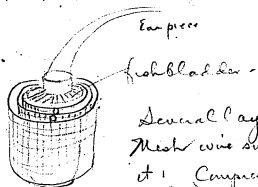 Ear piece
fishbladder -
Several lay
Mesh wire su
it! Compre